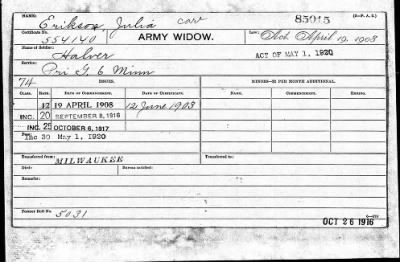 NAME: Erikson, Julia 85015 (3-P. A. G.)
Certificate No. 554140 ARMY WIDOW. Law: Act. April 19, 1908
Name of Soldier: Halver ACT OF MAY 1, 1920
Service: Pri G. 6 Minn
74 ISSUES. MINORS—$2 PER MONTH ADDITIONAL.
CLASS. RATE. DATE OF COMMENCEMENT. DATE OF CERTIFICATE. RATE. DATE OF COMMENCEMENT.
12 19 APRIL 1908 12 June 1908
INC. 20 SEPTEMBER 8, 1916
INC. 25 OCTOBER 6, 1917
Inc 30 May 1, 1920
Transferred from: MILWAUKEE Transferred to:
Died: Bureau notified:
Remarks:
Former Roll No. 5031
OCT 26 1916